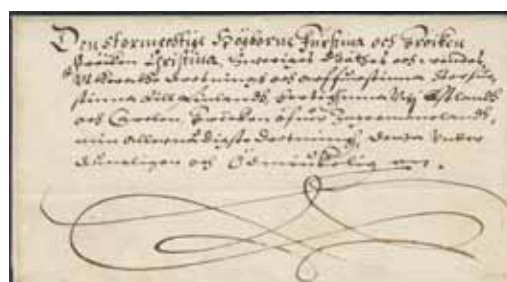 Den stormechtige Högborne Furstinna och Fröiken
Fröiken Christina, Sweriges Göthes och Wendes
Uthkorade Drotning och arffurstinna Storfur-
stinna till Finlandh, Hertiginna Uthi Estlandh
och Carelen, Fröiken öfuer Ingermanneland,
min allernådigste Drottningh, denna Under
dåneligen och Ödmiukelig